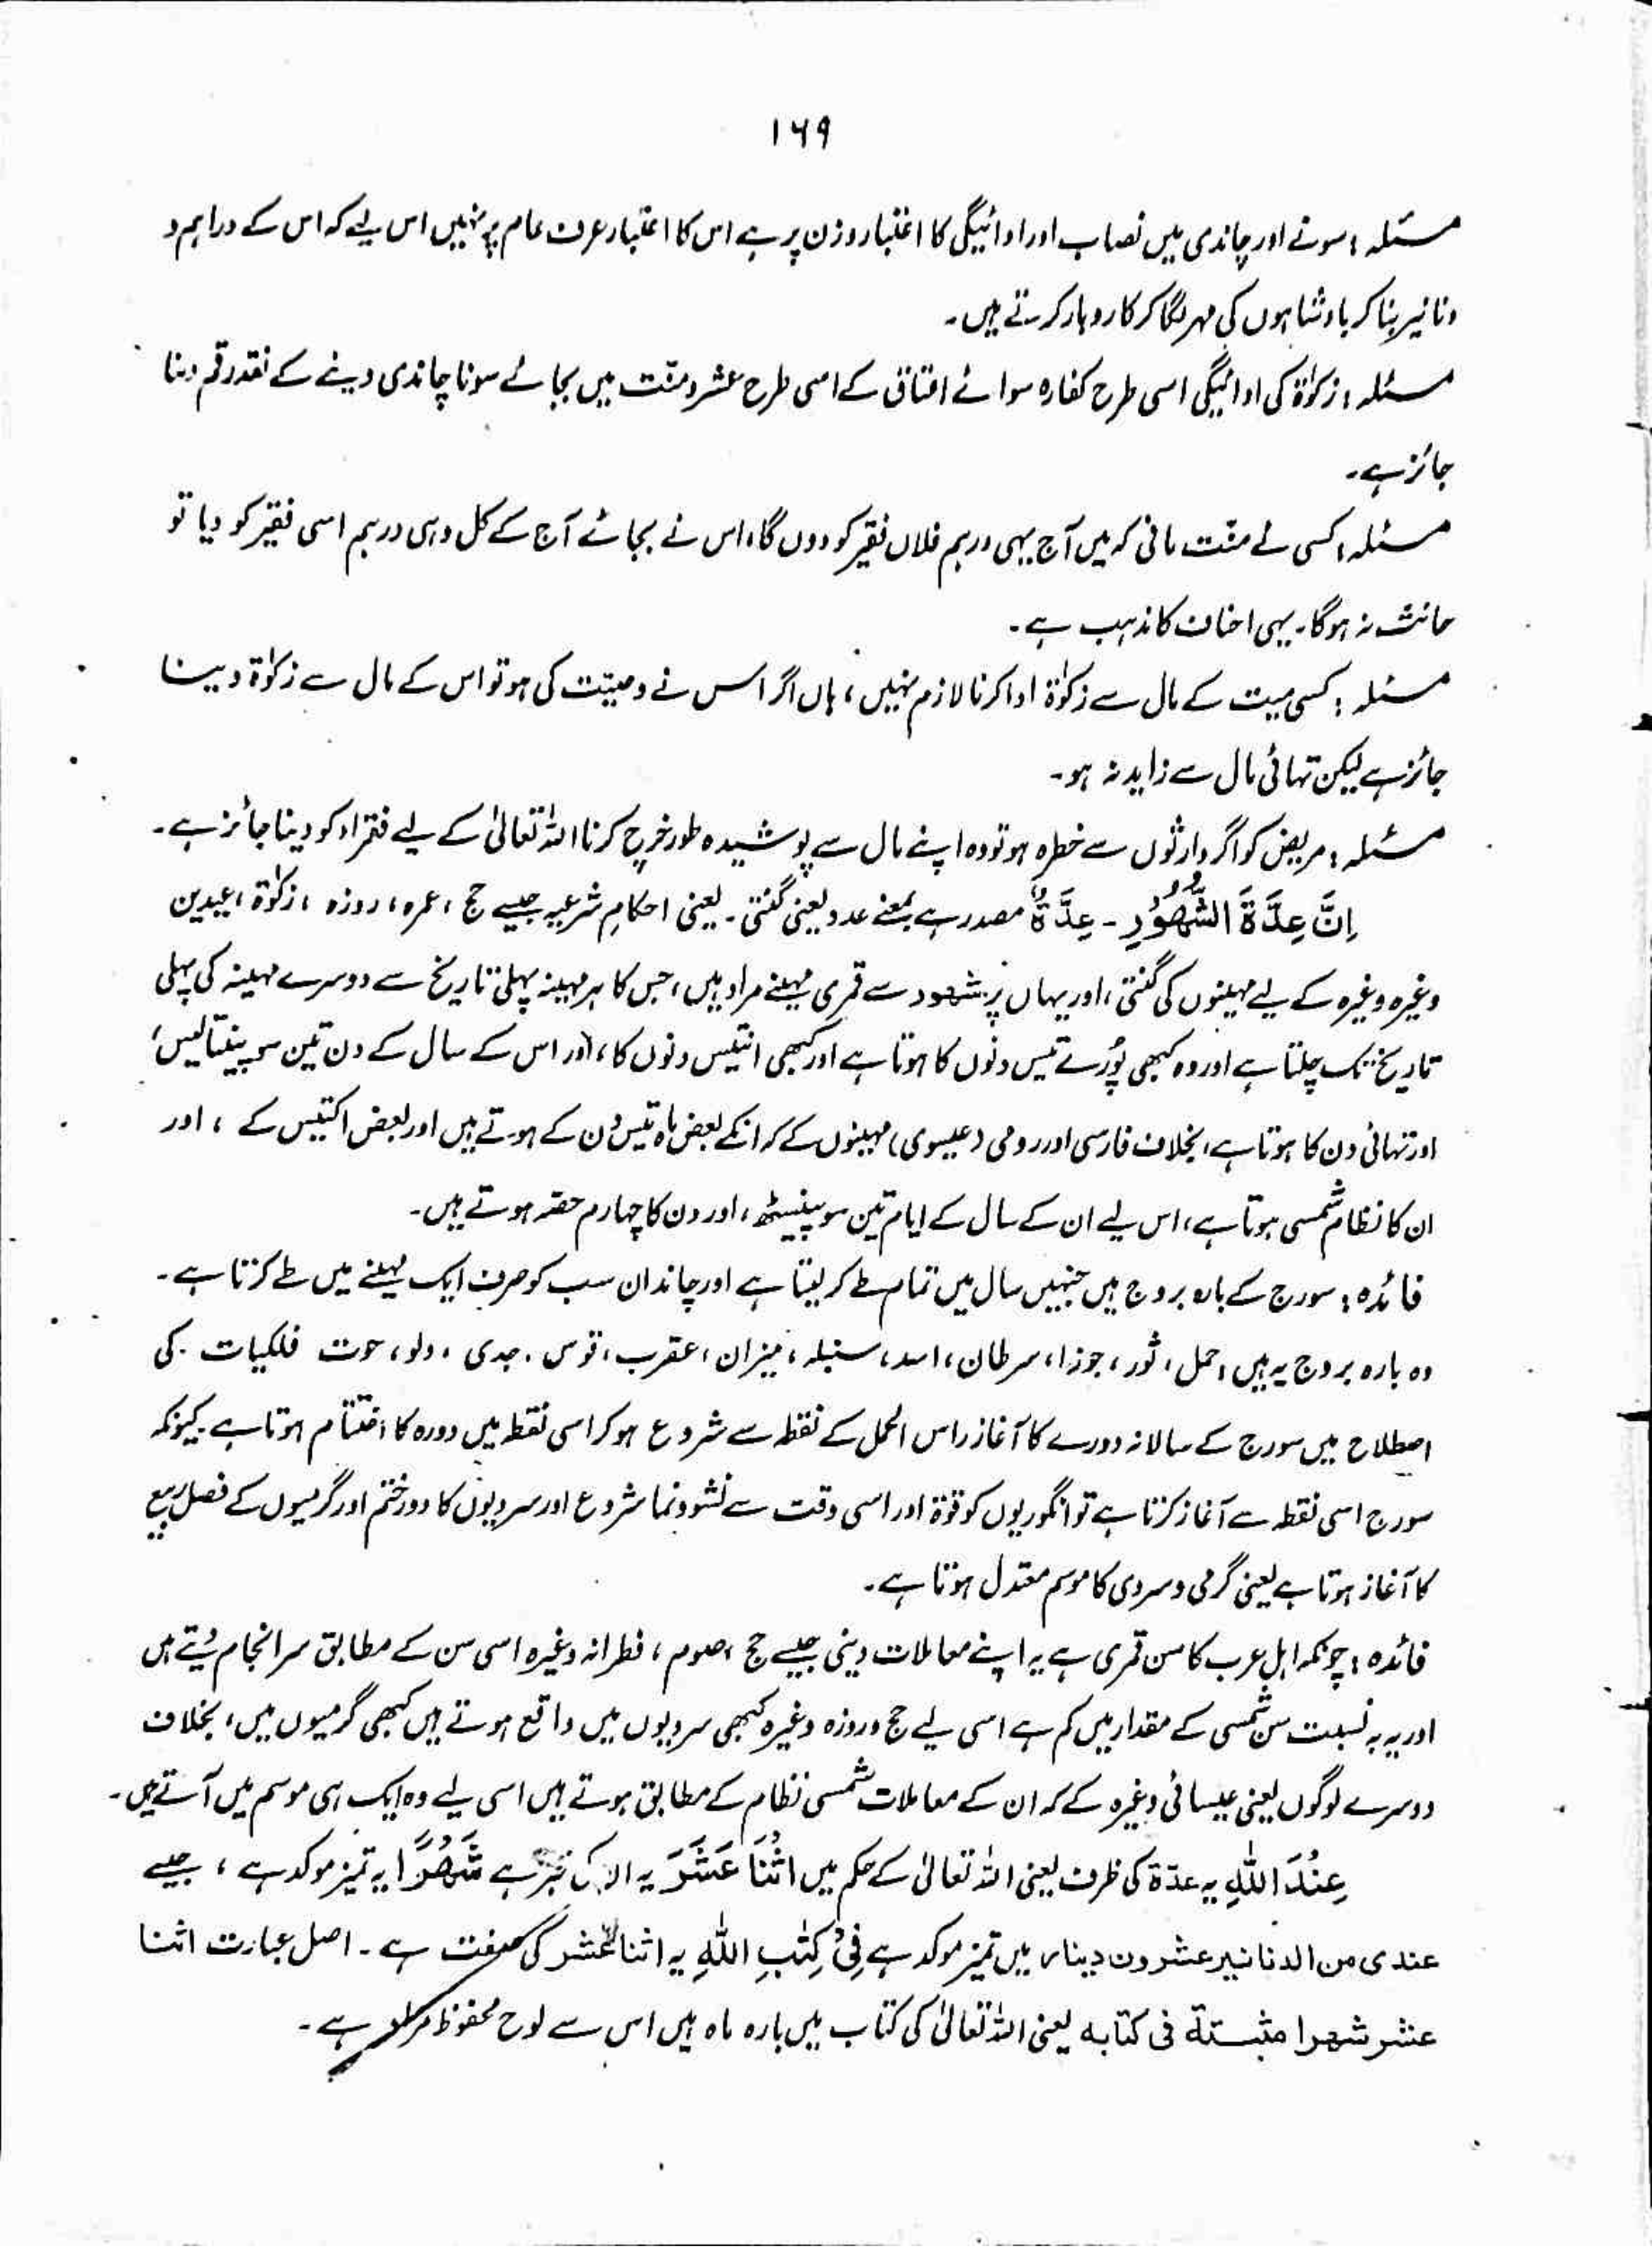 ۱۶۹
مسئلہ: سونے اور چاندی میں نصاب اور ادائیگی کا اعتبار وزن پر ہے اس کا اعتبار عرف عام پر نہیں اس لیے کہ اس کے دراہم و
دنانیر بنا کر بادشاہوں کی مہر لگا کر کاروبار کرتے ہیں۔
مسئلہ: زکوٰۃ کی ادائیگی اسی طرح کفارہ سوائے اعتاق کے اسی طرح عشر و منّت میں بجائے سونا چاندی دینے کے نقد رقم دینا
جائز ہے۔
مسئلہ: کسی نے منّت مانی کہ میں آج یہی درہم فلاں فقیر کو دوں گا، اس نے بجائے آج کے کل وہی درہم اسی فقیر کو دیا تو
حانث نہ ہوگا۔ یہی احناف کا مذہب ہے۔
مسئلہ: کسی میت کے مال سے زکوٰۃ ادا کرنا لازم نہیں، ہاں اگر اس نے وصیّت کی ہو تو اس کے مال سے زکوٰۃ دینا
جائز ہے لیکن تہائی مال سے زاید نہ ہو۔
مسئلہ: مریض کو اگر وارثوں سے خطرہ ہو تو وہ اپنے مال سے پوشیدہ طور خرچ کرنا اللہ تعالیٰ کے لیے فقراء کو دینا جائز ہے۔
اِنَّ عِدَّۃَ الشُّھُوْرِ۔ عِدَّۃٌ مصدر ہے بمعنے عدد یعنی گنتی۔ یعنی احکامِ شرعیہ جیسے حج، عمرہ، روزہ، زکوٰۃ، عیدین
وغیرہ وغیرہ کے لیے مہینوں کی گنتی، اور یہاں پر شھور سے قمری مہینے مراد ہیں، جس کا ہر مہینہ پہلی تاریخ سے دوسرے مہینہ کی پہلی
تاریخ تک چلتا ہے اور وہ کبھی پُورے تیس دنوں کا ہوتا ہے اور کبھی انتیس دنوں کا، اور اس کے سال کے دن تین سو پینتالیس،
اور تہائی دن کا ہوتا ہے، بخلاف فارسی اور رومی (عیسوی) مہینوں کے کہ انکے بعض ماہ تیس دن کے ہوتے ہیں اور بعض اکتیس کے، اور
ان کا نظام شمسی ہوتا ہے، اس لیے ان کے سال کے ایام تین سو پینسٹھ، اور دن کا چہارم حصّہ ہوتے ہیں۔
فائدہ: سورج کے بارہ بروج ہیں جنہیں سال میں تمام طے کر لیتا ہے اور چاند ان سب کو صرف ایک مہینے میں طے کرتا ہے۔
وہ بارہ بروج یہ ہیں، حمل، ثور، جوزا، سرطان، اسد، سنبلہ، میزان، عقرب، قوس، جدی، دلو، حوت فلکیات کی
اصطلاح میں سورج کے سالانہ دورے کا آغاز راس الحمل کے نقطہ سے شروع ہو کر اسی نقطہ میں دورہ کا اختتام ہوتا ہے۔ کیونکہ
سورج اسی نقطہ سے آغاز کرتا ہے تو انگوریوں کو قوۃ اور اسی وقت سے نشوونما شروع اور سردیوں کا دور ختم اور گرمیوں کے فصل ربیع
کا آغاز ہوتا ہے یعنی گرمی و سردی کا موسم معتدل ہوتا ہے۔
فائدہ: چونکہ اہلِ عرب کا سن قمری ہے یہ اپنے معاملات دینی جیسے حج، صوم، فطرانہ وغیرہ اسی سن کے مطابق سرانجام دیتے ہیں
اور یہ بہ نسبت سن شمسی کے مقدار میں کم ہے اسی لیے حج و روزہ وغیرہ کبھی سردیوں میں واقع ہوتے ہیں کبھی گرمیوں میں، بخلاف
دوسرے لوگوں یعنی عیسائی وغیرہ کے کہ ان کے معاملات شمسی نظام کے مطابق ہوتے ہیں اسی لیے وہ ایک ہی موسم میں آتے ہیں۔
عِنْدَ اللّٰہِ یہ عدّۃ کی ظرف یعنی اللہ تعالیٰ کے حکم میں اثْنَا عَشَرَ یہ ان کی خبر ہے شَھْرًا یہ تمیز موکد ہے، جیسے
عندی من الدنانیر عشرون دینار میں تمیز موکد ہے فِیْ کِتٰبِ اللّٰہِ یہ اثنا عشر کی صفت ہے۔ اصل عبارت اثنا
عشر شھرا مثبتۃ فی کتابہ یعنی اللہ تعالیٰ کی کتاب میں بارہ ماہ ہیں اس سے لوح محفوظ مراد ہے۔